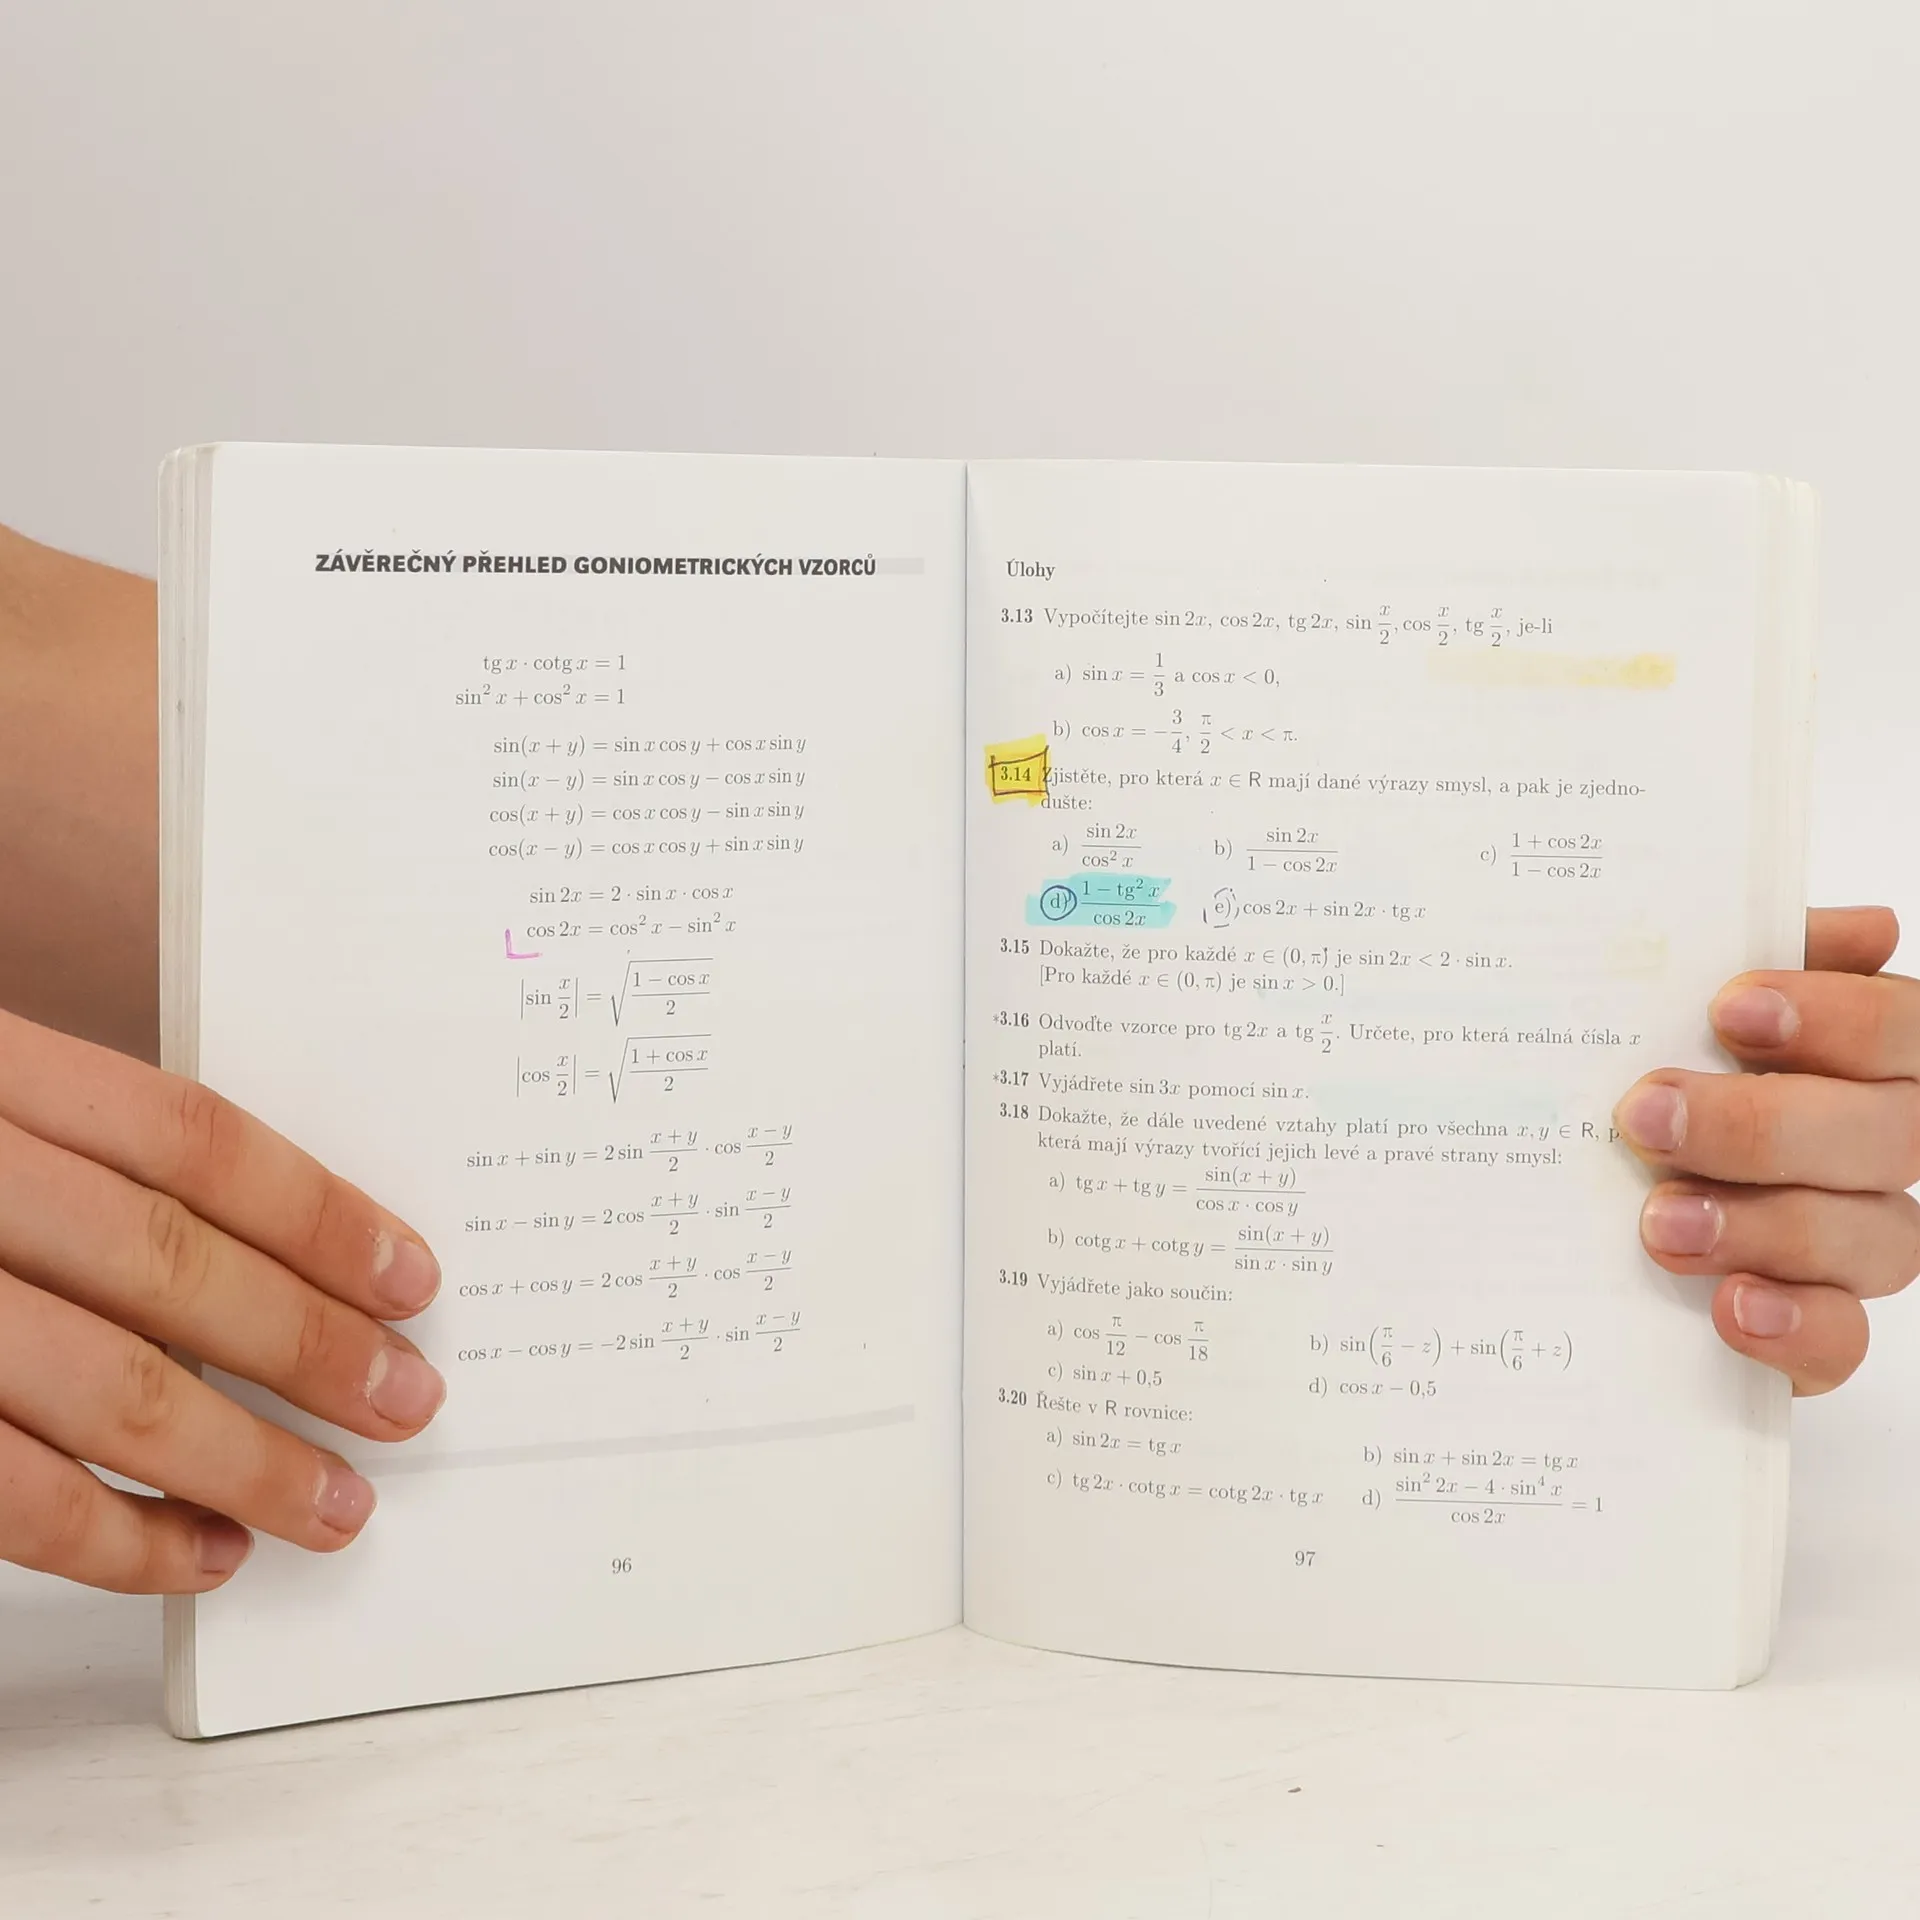 ZÁVĚREČNÝ PŘEHLED GONIOMETRICKÝCH VZORCŮ
tg x · cotg x = 1
sin² x + cos² x = 1
sin(x + y) = sin x cos y + cos x sin y
sin(x − y) = sin x cos y − cos x sin y
cos(x + y) = cos x cos y − sin x sin y
cos(x − y) = cos x cos y + sin x sin y
sin 2x = 2 · sin x · cos x
cos 2x = cos² x − sin² x
|sin x/2| = √((1 − cos x)/2)
|cos x/2| = √((1 + cos x)/2)
sin x + sin y = 2 sin (x + y)/2 · cos (x − y)/2
sin x − sin y = 2 cos (x + y)/2 · sin (x − y)/2
cos x + cos y = 2 cos (x + y)/2 · cos (x − y)/2
cos x − cos y = −2 sin (x + y)/2 · sin (x − y)/2
96
Úlohy
3.13 Vypočítejte sin 2x, cos 2x, tg 2x, sin x/2, cos x/2, tg x/2, je-li
a) sin x = 1/3 a cos x < 0,
b) cos x = −3/4, π/2 < x < π.
3.14 Zjistěte, pro která x ∈ R mají dané výrazy smysl, a pak je zjedno-
dušte:
a) sin 2x/cos² x b) sin 2x/(1 − cos 2x) c) (1 + cos 2x)/(1 − cos 2x)
d) (1 − tg² x)/cos 2x e) cos 2x + sin 2x · tg x
3.15 Dokažte, že pro každé x ∈ (0, π) je sin 2x < 2 · sin x.
[Pro každé x ∈ (0, π) je sin x > 0.]
*3.16 Odvoďte vzorce pro tg 2x a tg x/2. Určete, pro která reálná čísla x
platí.
*3.17 Vyjádřete sin 3x pomocí sin x.
3.18 Dokažte, že dále uvedené vztahy platí pro všechna x, y ∈ R,
která mají výrazy tvořící jejich levé a pravé strany smysl:
a) tg x + tg y = sin(x + y)/(cos x · cos y)
b) cotg x + cotg y = sin(x + y)/(sin x · sin y)
3.19 Vyjádřete jako součin:
a) cos π/12 − cos π/18 b) sin(π/6 − z) + sin(π/6 + z)
c) sin x + 0,5 d) cos x − 0,5
3.20 Řešte v R rovnice:
a) sin 2x = tg x b) sin x + sin 2x = tg x
c) tg 2x · cotg x = cotg 2x · tg x d) (sin² 2x − 4 · sin⁴ x)/cos 2x = 1
97